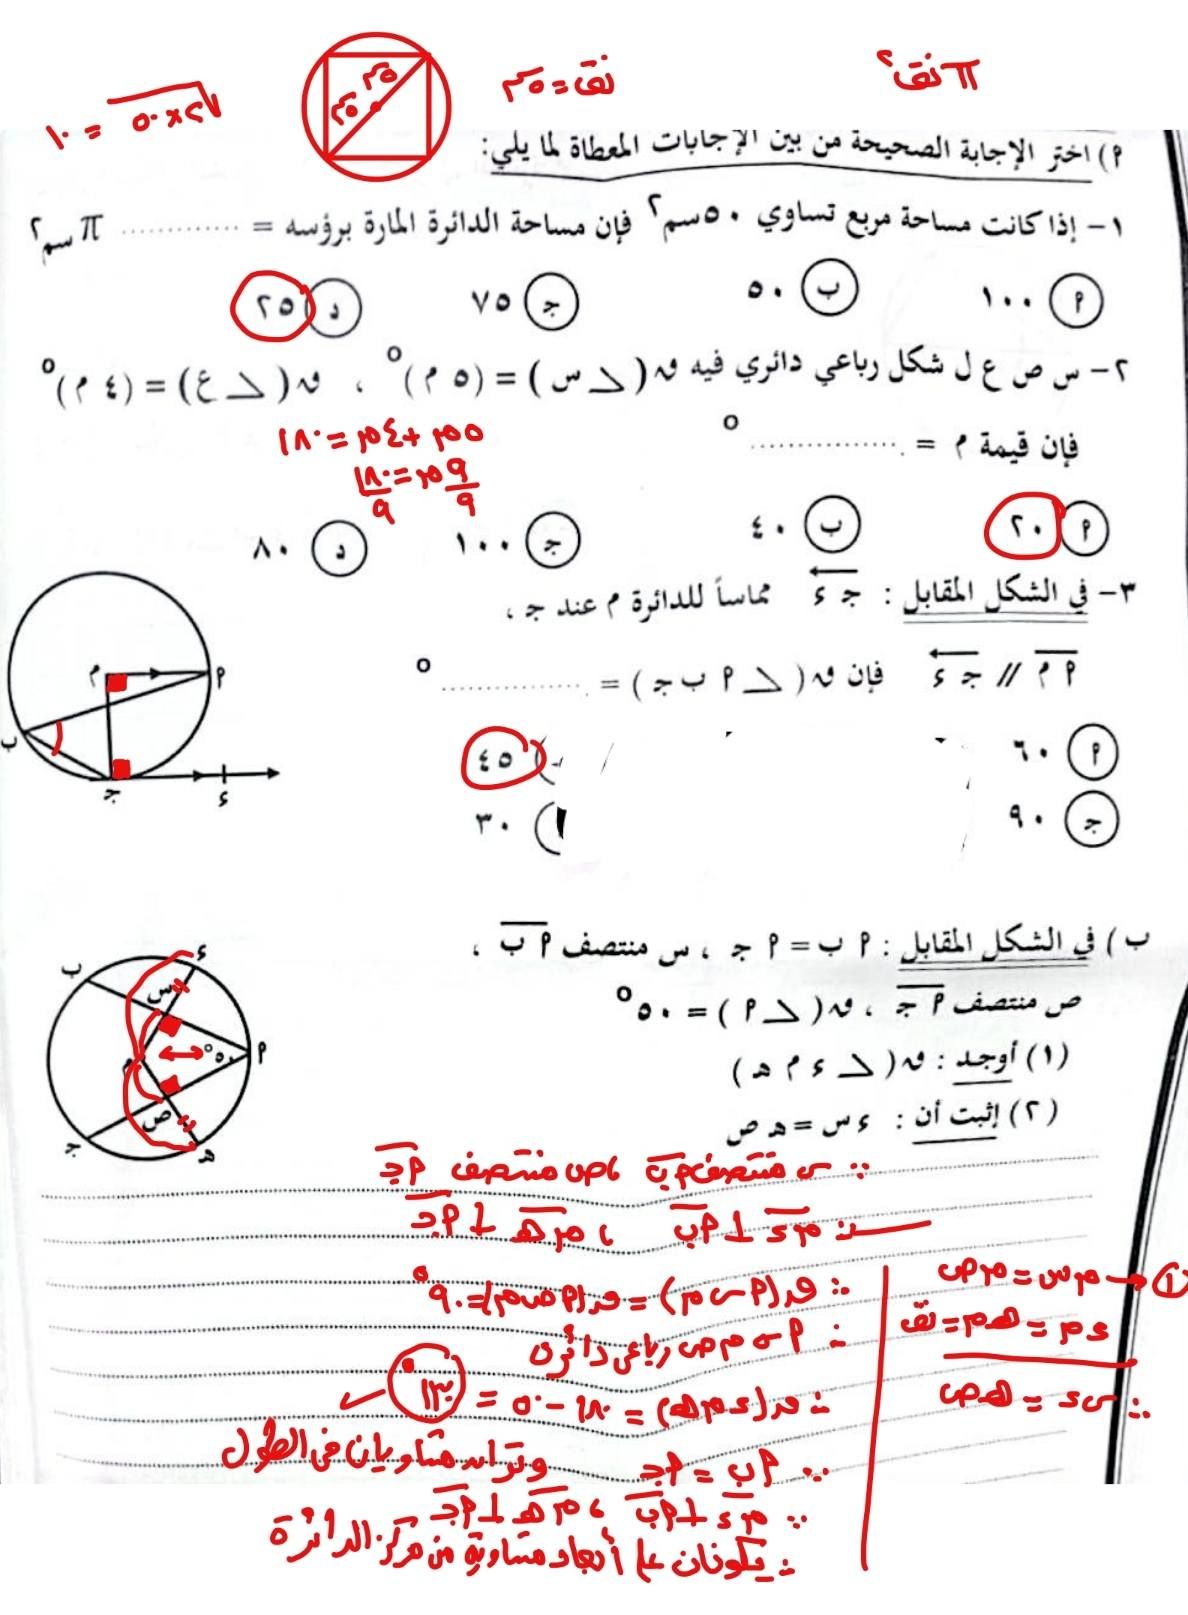 π نق٢
نق = م٥
√(٢×٥٠) = ١٠
م٥ م٥
٢) اختر الإجابة الصحيحة من بين الإجابات المعطاة لما يلي:
١- إذا كانت مساحة مربع تساوي ٥٠ سم٢ فإن مساحة الدائرة المارة برؤسه = ............ π سم٢
٢ ١٠٠ ب ٥٠ جـ ٧٥ د ٢٥
٢- س ص ع ل شكل رباعي دائري فيه ق (∠ س) = (٥ م)° ، ق (∠ ع) = (٤ م)°
٥م + ٤م = ١٨٠
فإن قيمة م = ................ °
٩م/٩ = ١٨٠/٩
٢ ٢٠ ب ٤٠ جـ ١٠٠ د ٨٠
٣- في الشكل المقابل : جـ ء مماساً للدائرة م عند جـ ،
٢ م // جـ ء فإن ق (∠ ٢ ب جـ) = ................ °
٢ ٦٠ ٤٥
جـ ٩٠ ٣٠
م ٢ ب جـ ء
ب) في الشكل المقابل : ٢ ب = ٢ جـ ، س منتصف ٢ ب ،
ص منتصف ٢ جـ ، ق (∠ ٢) = ٥٠°
(١) أوجد : ق (∠ ء م هـ)
(٢) إثبت أن : ء س = هـ ص
ء ب س م ٥٠° ٢ ص جـ هـ
∵ س منتصف ٢ب ، ص منتصف ٢جـ
∴ م ء ⊥ ٢ب ، م هـ ⊥ ٢جـ
∴ ق(٢ س م) = ق(٢ ص م) = ٩٠°
∴ ٢ س م ص رباعى دائرى
∴ ق(ء م هـ) = ١٨٠ - ٥٠ = ١٣٠°
∵ ٢ب = ٢جـ وتران متساويان فى الطول
∵ م ء ⊥ ٢ب ، م هـ ⊥ ٢جـ
∴ يكونان على أبعاد متساوية من مركز الدائرة
م س = م ص ← ①
ء م = هـ م = نق
∴ س ء = هـ ص